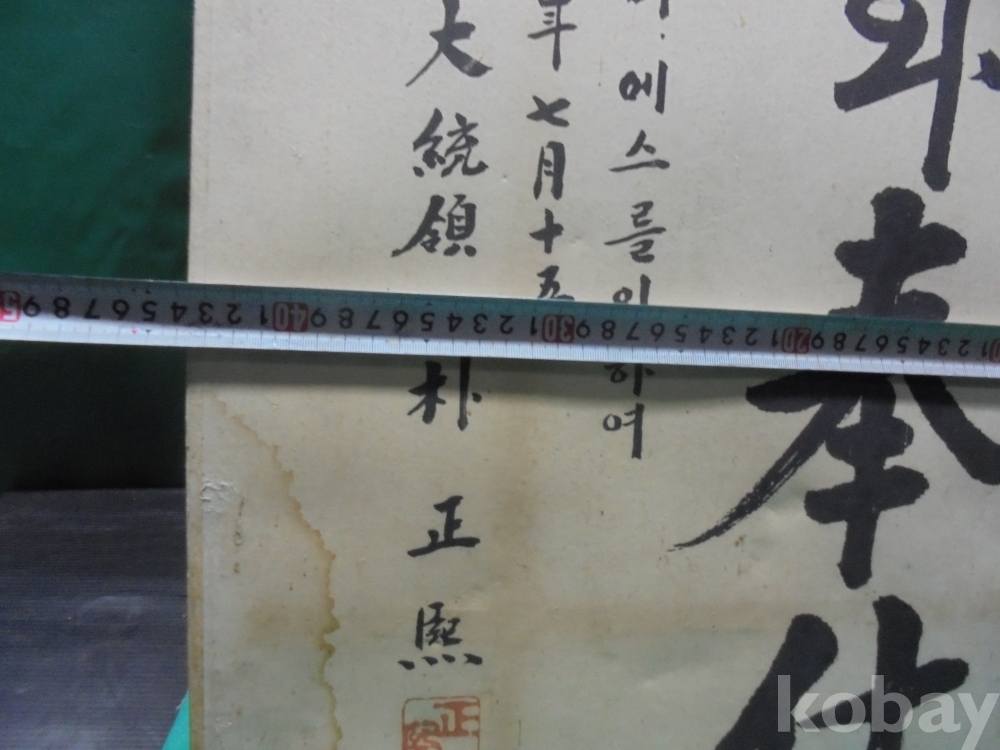 本
에스를 여
年 七月十五
大統領 朴正熙
正
5 9 8 7 6 5 4 3 2 1 40 9 8 7 6 5 4 3 2 1 30 9 8 7 6 5 4 3 2 1 20 9 8 7 6 5 4 3 2 1
kobay